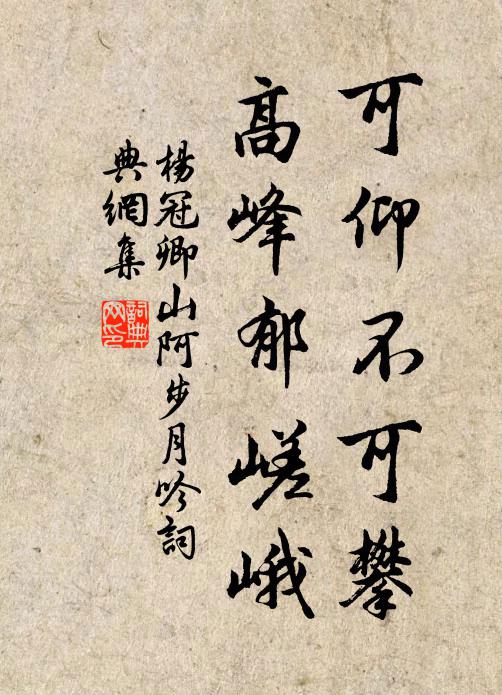 可仰不可攀
高峰郁嵯峨
楊冠卿山阿步月吟詞
典網集
詞典
网印